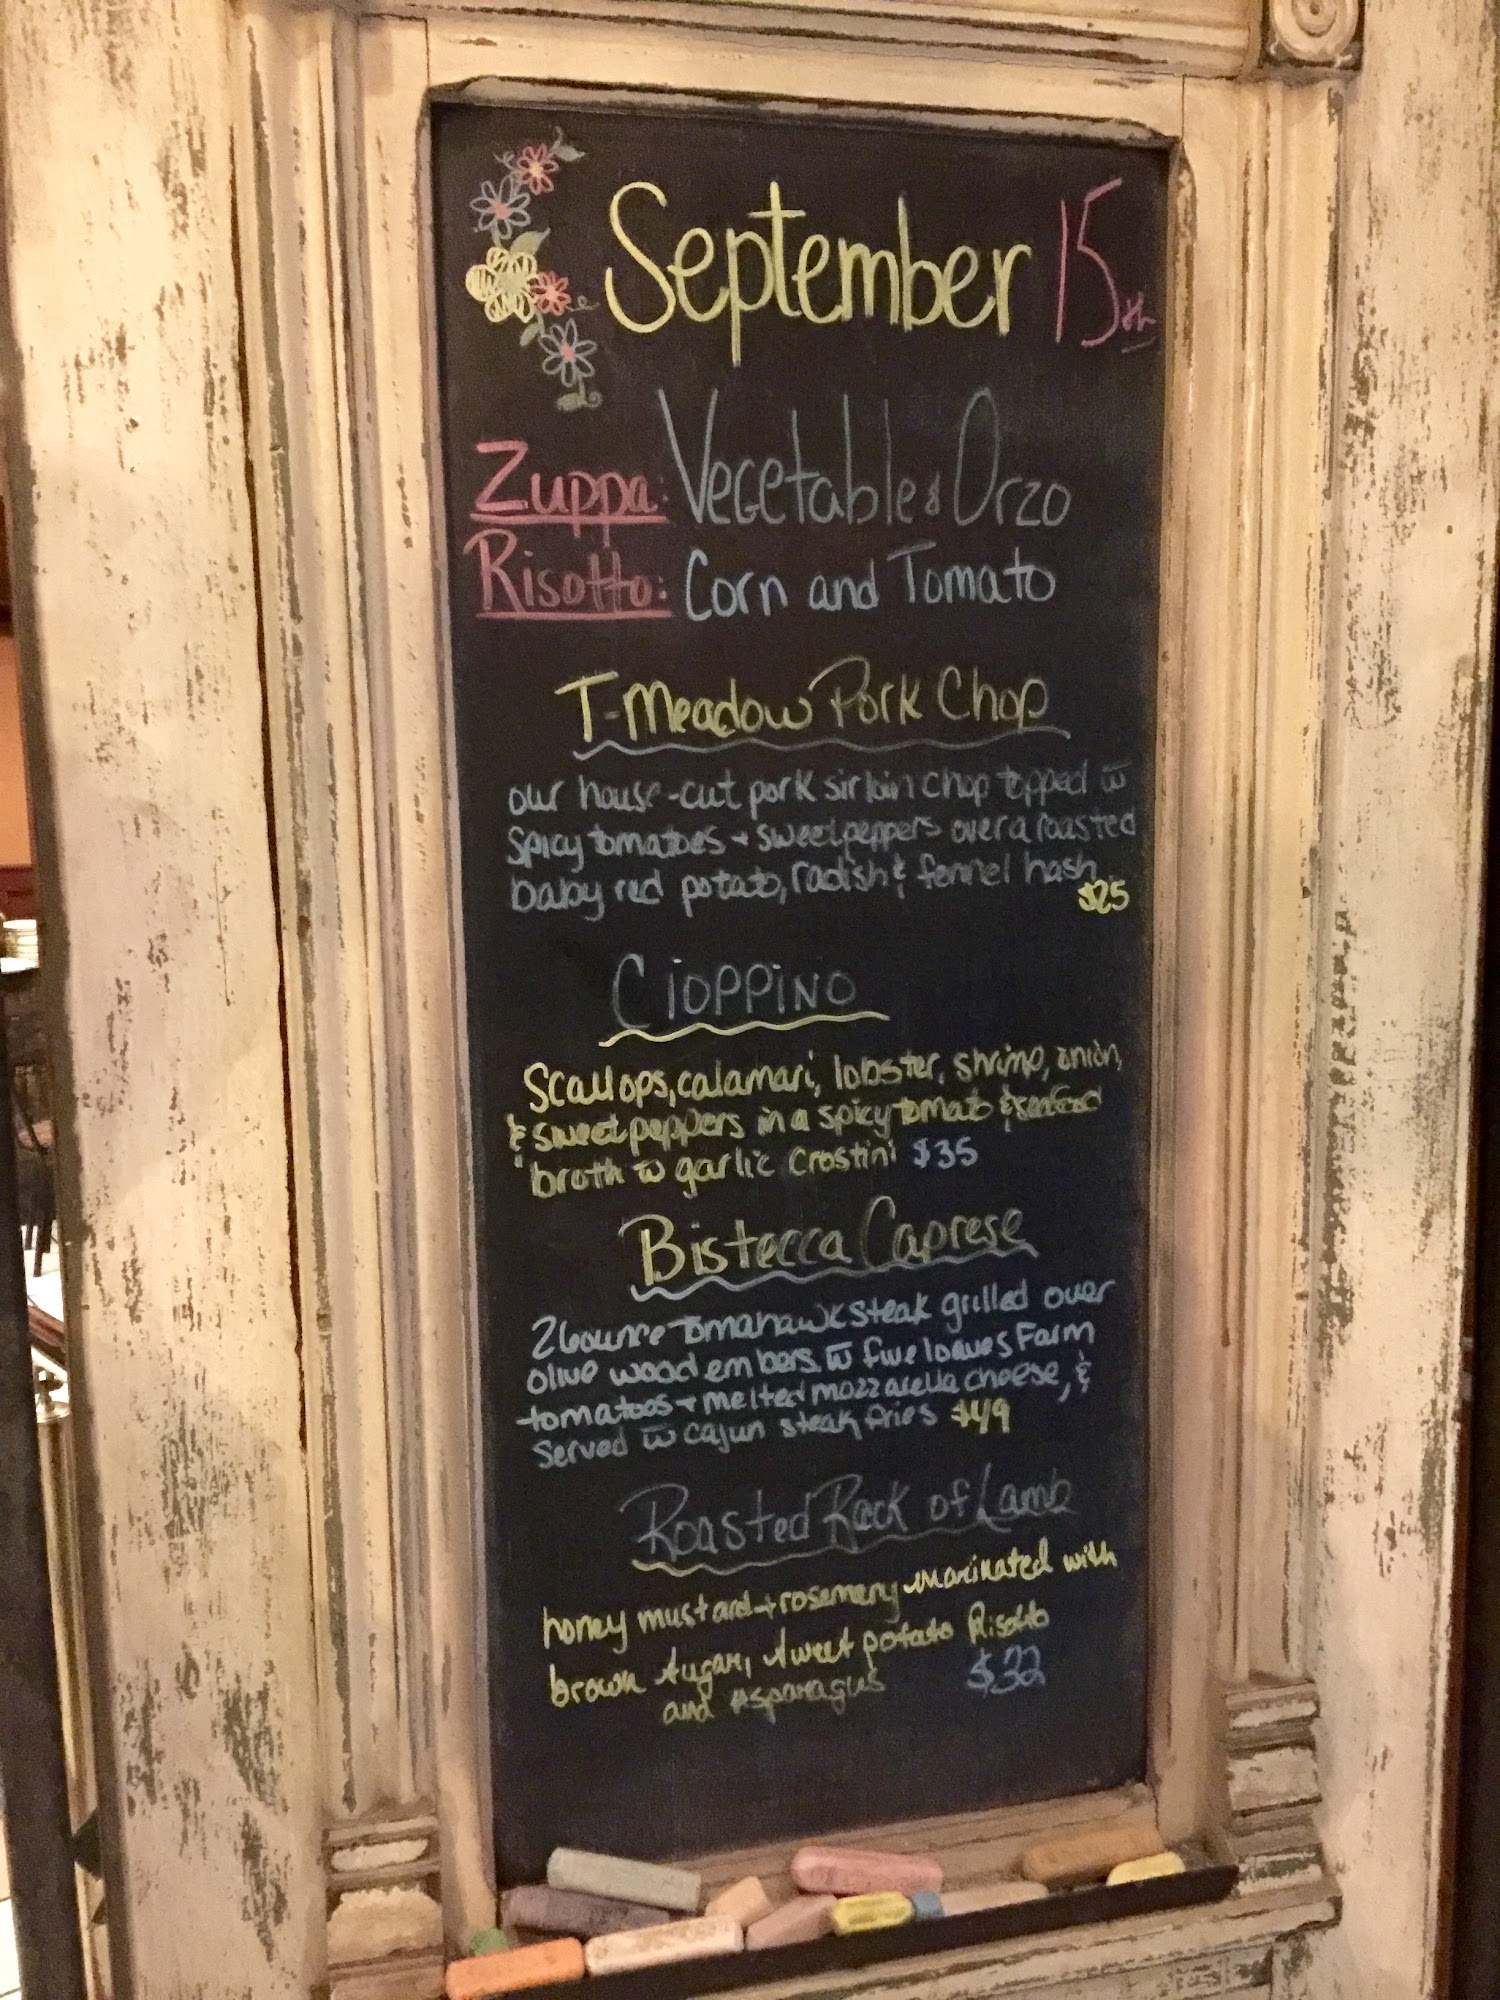 September 15th
Zuppa: Vegetable & Orzo
Risotto: Corn and Tomato
T-Meadow Pork Chop
our house-cut pork sirloin chop topped w
spicy tomatoes + sweet peppers over a roasted
baby red potato, radish & fennel hash
$25
Cioppino
Scallops, calamari, lobster, shrimp, onion,
& sweet peppers in a spicy tomato & seafood
broth w garlic crostini $35
Bistecca Caprese
26 ounce tomahawk steak grilled over
olive wood embers w five loaves Farm
tomatoes + melted mozzarella cheese, &
served w cajun steak fries $49
Roasted Rack of Lamb
honey mustard + rosemary marinated with
brown sugar, sweet potato Risotto
and asparagus $32